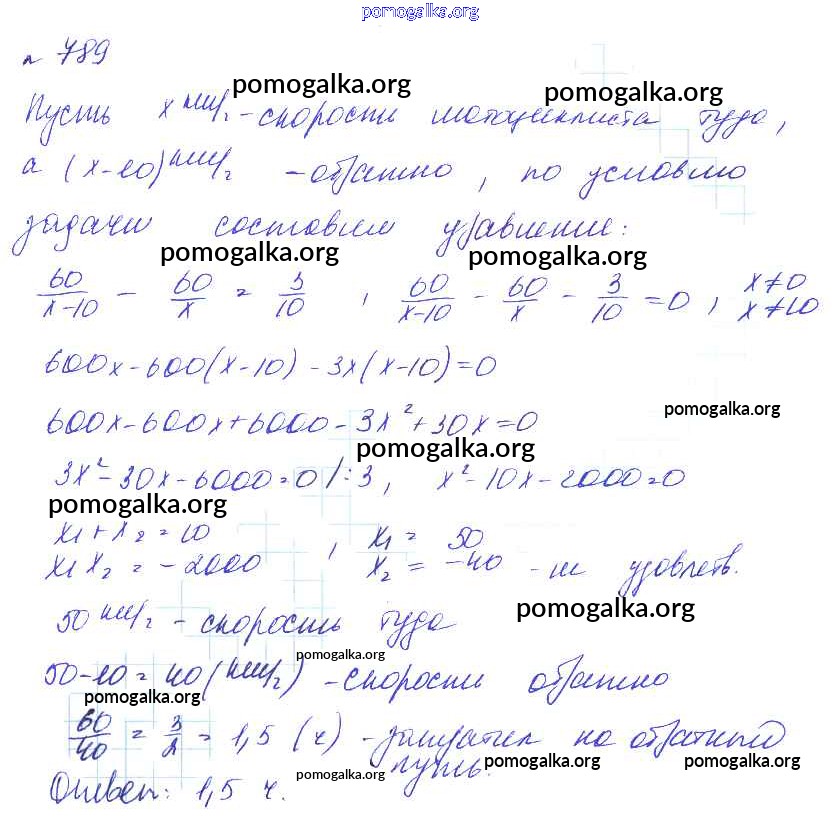 pomogalka.org
№ 789
pomogalka.org pomogalka.org
Пусть x км/ч - скорость мотоциклиста туда,
а (x-10) км/ч - обратно, по условию
задачи составим уравнение:
pomogalka.org pomogalka.org
60/(x-10) - 60/x = 3/10, 60/(x-10) - 60/x - 3/10 = 0, x≠0 x≠10
600x-600(x-10)-3x(x-10)=0
pomogalka.org
600x-600x+6000-3x²+30x=0
pomogalka.org
3x²-30x-6000=0 /:3, x²-10x-2000=0
pomogalka.org
x₁+x₂=10
x₁x₂=-2000, x₁= 50
x₂= -40 - не удовлетв.
pomogalka.org
50 км/ч - скорость туда
pomogalka.org
50-10=40(км/ч) - скорость обратно
pomogalka.org pomogalka.org
60/40 = 3/2 = 1,5 (ч) - затратил на обратный
путь.
pomogalka.org pomogalka.org pomogalka.org
Ответ: 1,5 ч.